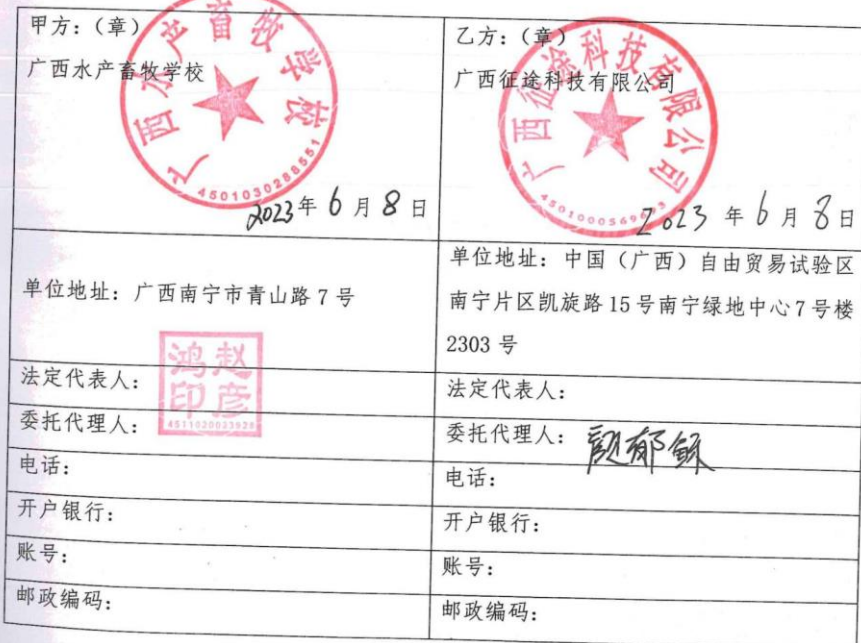 甲方：（章）
广西水产畜牧学校
广西水产畜牧学校
4501030288551
2023年6月8日
乙方：（章）
广西征途科技有限公司
广西征途科技有限公司
2023年6月8日
单位地址：广西南宁市青山路7号
单位地址：中国（广西）自由贸易试验区
南宁片区凯旋路15号南宁绿地中心7号楼
2303号
法定代表人：
鸿赵
印彦
4511020023928
法定代表人：
委托代理人：
委托代理人：
电话：
电话：
开户银行：
开户银行：
账号：
账号：
邮政编码：
邮政编码：